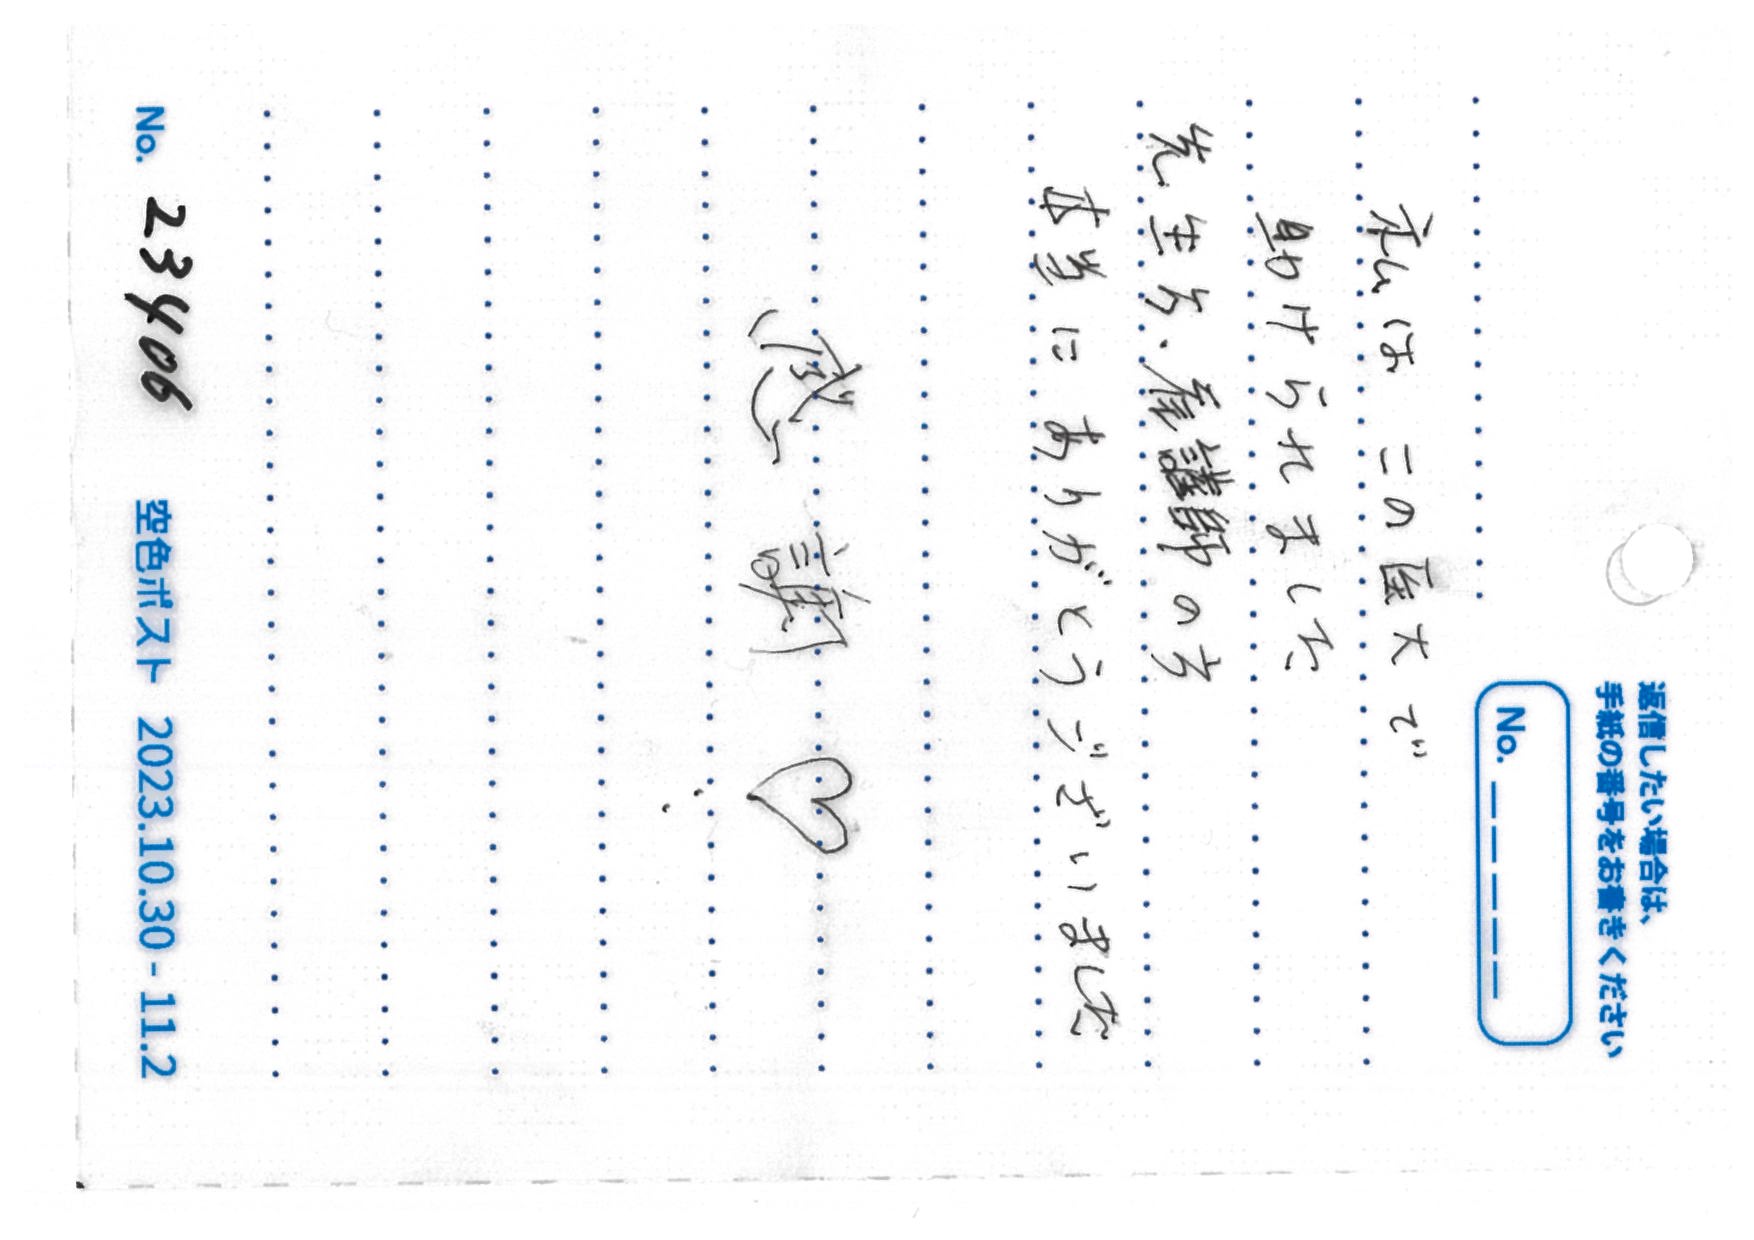 返信したい場合は、
手紙の番号をお書きください
No. _ _ _ _ _
私は この医大で
助けられました
先生方、看護師の方
本当に ありがとうございました
感謝♡
No. 23406 空色ポスト 2023.10.30 - 11.2